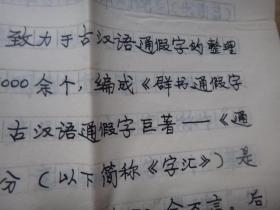 致力于古汉语通假字的整理
000余个，编成《群书通假字
古汉语通假字巨著——《通
分（以下简称《字汇》）是
言，后